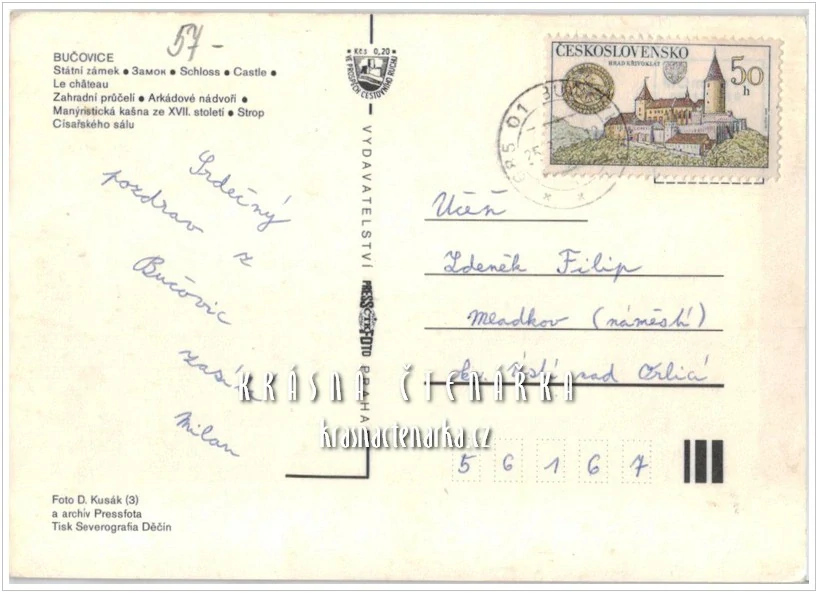 57-
BUČOVICE
Státní zámek ● Замок ● Schloss ● Castle ●
Le château
Zahradní průčelí ● Arkádové nádvoří ●
Manýristická kašna ze XVII. století ● Strop
Císařského sálu
Srdečný
pozdrav z
Bučovic
zasílá
Milan
Foto D. Kusák (3)
a archiv Pressfota
Tisk Severografia Děčín
Kčs 0,20
VE PROSPĚCH CESTOVNÍHO RUCHU
VYDAVATELSTVÍ
PRESSFOTO
ČTK
PRAHA
ČESKOSLOVENSKO
HRAD KŘIVOKLÁT
50
h
685 01
25
Učeň
Zdeněk Filip
Mladkov (náměstí)
okr. Ústí nad Orlicí
56167
KRÁSNA ČTENÁRKA
krasnactenarka.cz